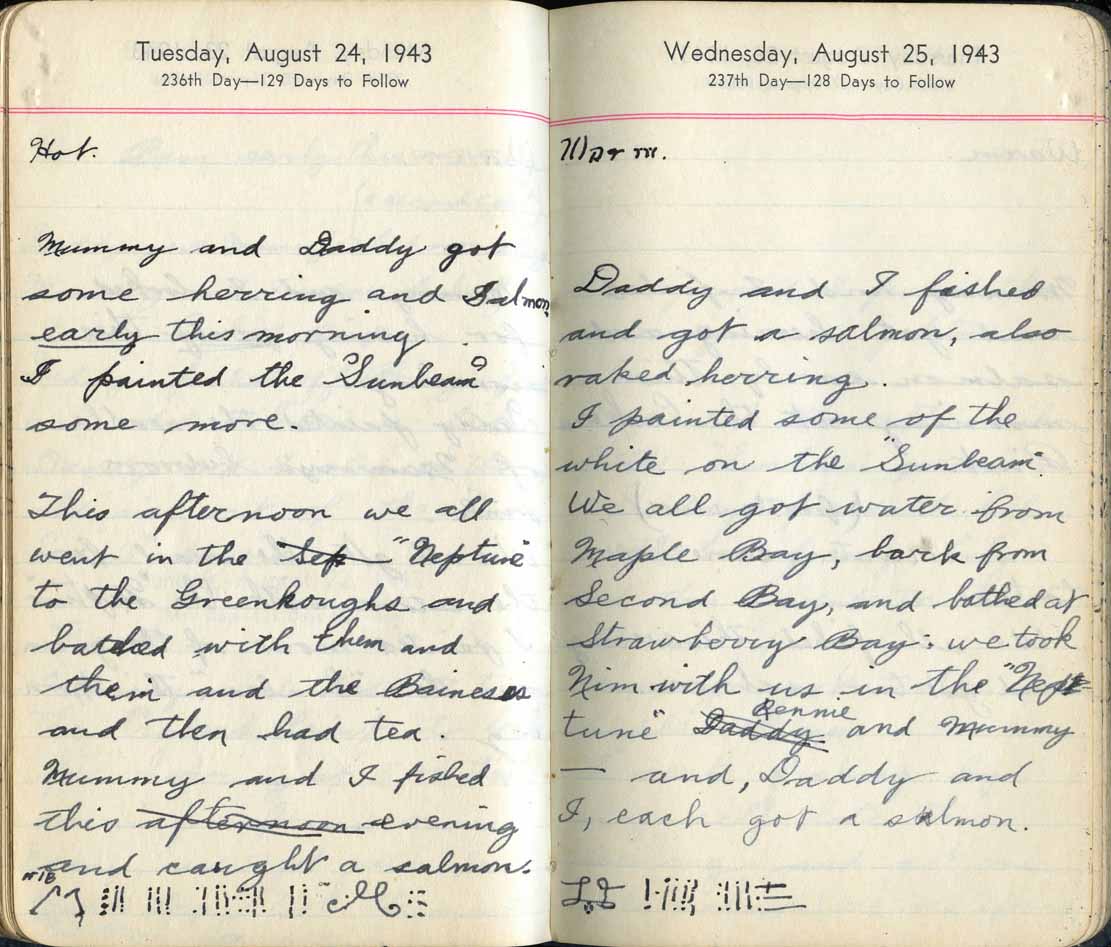 Tuesday, August 24, 1943
236th Day—129 Days to Follow
Hot.
Mummy and Daddy got
some herring and Salmon
early this morning.
I painted the "Sunbeam"
some more.
This afternoon we all
went in the "Sep "Neptune"
to the Greenhoughs and
bathed with them and
them and the Baineses
and then had tea.
Mummy and I fished
this afternoon evening
and caught a salmon.
Wednesday, August 25, 1943
237th Day—128 Days to Follow
Warm.
Daddy and I fished
and got a salmon, also
raked herring.
I painted some of the
white on the "Sunbeam".
We all got water from
Maple Bay, bark from
Second Bay, and bathed at
Strawberry Bay: we took
Nim with us in the "Nep-
tune" Daddy Rennie and Mummy
— and, Daddy and
I, each got a salmon.